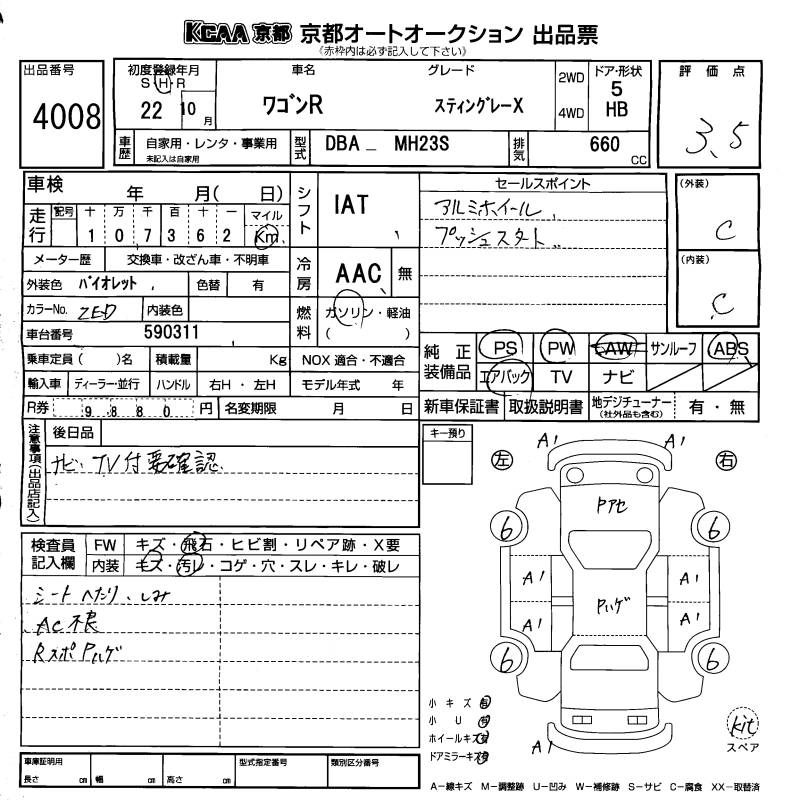 KCAA 京都 京都オートオークション 出品票
《赤枠内は必ず記入して下さい》
出品番号
4008
初度登録年月
S・H・R
22 10月
車名
ワゴンR
グレード
スティングレーX
2WD
4WD
ドア・形状
5
HB
車歴
自家用・レンタ・事業用
未記入は自家用
型式
DBA_ MH23S
排気
660
CC
評価点
3.5
車検
年 月( 日)
走行
記号 十 万 千 百 十 一 マイル
1 0 7 3 6 2 Km
メーター歴 交換車・改ざん車・不明車
外装色 バイオレット 色替 有
カラーNo. ZED 内装色
車台番号 590311
乗車定員( )名 積載量 Kg
輸入車 ディーラー・並行 ハンドル 右H・左H
R券 9880 円 名変期限 月 日
シフト
IAT
冷房
AAC 無
燃料
ガソリン・軽油
( )
NOX 適合・不適合
モデル年式 年
セールスポイント
アルミホイール
プッシュスタート
(外装)
C
(内装)
C
純正装備品
PS PW AW サンルーフ ABS
エアバック TV ナビ
新車保証書 取扱説明書 地デジチューナー(社外品も含む) 有・無
注意事項(出品店記入)
後日品
ナビ、TV付要確認
キー預り
検査員記入欄
FW キズ・飛石・ヒビ割・リペア跡・X要
内装 キズ・汚レ・コゲ・穴・スレ・キレ・破レ
シートへたり、しみ
AC不良
RスポPハゲ
左
右
A1 A1
Pアセ
6 6
A1 A1
Pハゲ
A1 A1
6 6
A1
小キズ 有
小U 有
ホイールキズ 有
ドアミラーキズ 有
kit
スペア
車庫証明用
長さ cm 幅 cm 高さ cm
型式指定番号
類別区分番号
A−線キズ M−調整跡 U−凹み W−補修跡 S−サビ C−腐食 XX−取替済